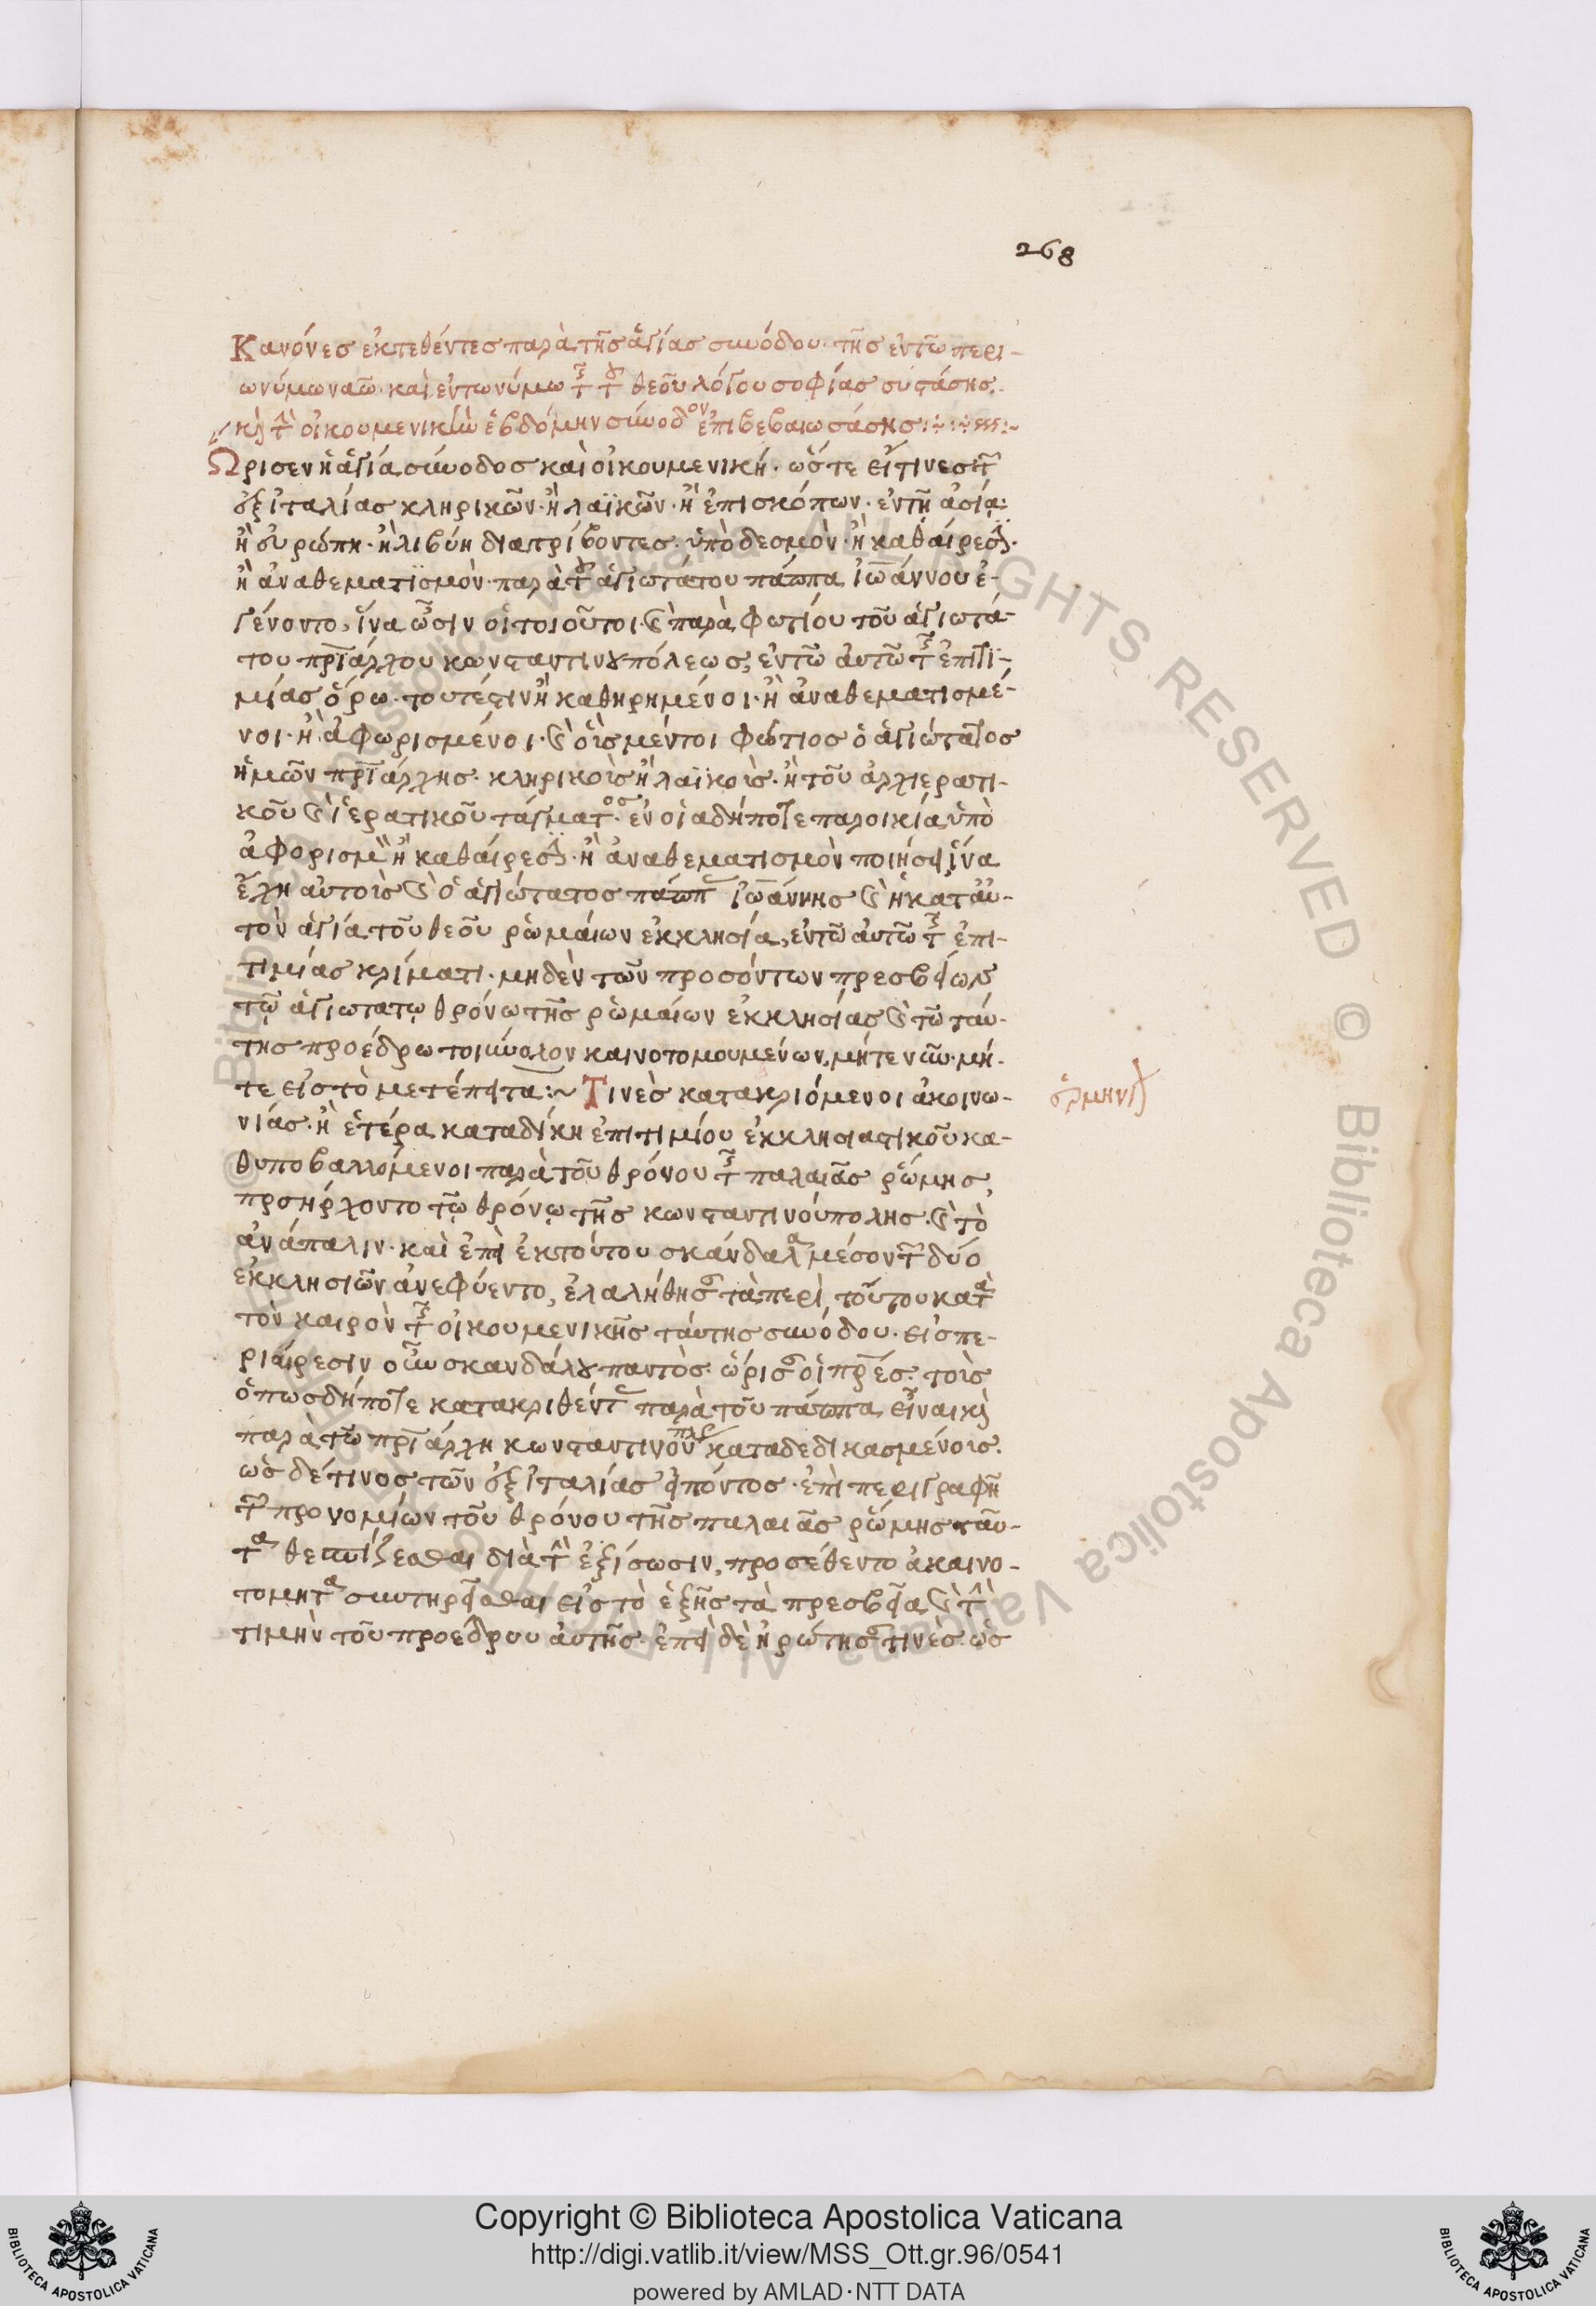 268
Κανόνες ἐκτεθέντες παρὰ τῆς ἁγίας συνόδου τῆς ἐν τῷ περι-
ωνύμω ναῶ· καὶ ἐν τωνύμω τῆς τοῦ θεοῦ λόγου σοφίας συστάσης.
κ(αὶ) τὴν οἰκουμενικὴν ἑβδόμην σύνοδον ἐπιβεβαιωσάσης:
Ὥρισεν ἡ ἁγία σύνοδος καὶ οἰκουμενική· ὥστε εἴ τινες τῶν
ἐξ ἰταλίας κληρικῶν· ἢ λαϊκῶν· ἢ ἐπισκόπων· ἐν τῆ ἀσία·
ἢ εὐρώπη· ἢ λιβύη διατρίβοντες· ὑπὸ δεσμὸν· ἢ καθαίρεσιν·
ἢ ἀναθεματϊσμὸν· παρὰ τοῦ ἁγιωτάτου πάπα ἰωάννου ἐ-
γένοντο, ἵνα ὦσιν οἱ τοιοῦτοι· καὶ παρὰ φωτίου τοῦ ἁγιωτά-
του πριάρχου κωνσταντινουπόλεως, ἐν τῶ ἀυτῶ τῆς ἐπιτι-
μίας ὅρω· τουτέστιν ἢ καθηρημένοι· ἢ ἀναθεματισμέ-
νοι· ἢ ἀφωρισμένοι· καὶ οἷς μέντοι φώτιος ὁ ἁγιώτατος
ἡμῶν πριάρχης· κληρικοῖς ἢ λαϊκοῖς· ἢ τοῦ ἀρχιερατι-
κοῦ καὶ ἱερατικοῦ τάγματος· ἐν οἱαδήποτε παροικία ὑπὸ
ἀφορισμὸν ἢ καθαίρεσιν· ἢ ἀναθεματισμὸν ποιήσει ἵνα
ἔχη αὐτοὺς καὶ ὁ ἁγιώτατος πάπας ἰωάννης καὶ ἡ κατ αὐ-
τὸν ἁγία τοῦ θεοῦ ῥωμαίων ἐκκλησία, ἐν τῶ ἀυτῶ τῆς ἐπι-
τιμίας κρίματι· μηδὲν τῶν προσόντων πρεσβείων
τῷ ἁγιωτατῳ θρόνω τῆς ῥωμαίων ἐκκλησίας καὶ τῶ ταύ-
της προέδρω τοσύνολον καινοτομουμένων, μήτε νῦν· μή-
τε εἰς τὸ μετέπειτα:~ Τινὲς κατακριόμενοι ἀκοινω-
νίας· ἢ ἑτέρα καταδίκη ἐπιτιμίου ἐκκλησιαστικοῦ κα-
θυποβαλλόμενοι παρὰ τοῦ θρόνου τῆς παλαιᾶς ῥώμης,
προσήρχοντο τῷ θρόνῳ τῆς κωνσταντινούπολης· καὶ τὸ
ἀνάπαλιν· καὶ ἐπεὶ ἐκ τούτου σκάνδαλα μέσον τῶν δύο
ἐκκλησιῶν ἀνεφύεντο, ἐλαλήθησαν τὰ περὶ τούτου κατὰ
τὸν καιρὸν τῆς οἰκουμενικῆς ταύτης συνόδου· εἰς πε-
ριαίρεσιν οὖν σκανδάλου παντὸς· ὥρισαν οἱ πρες· τοῖς
ὁπωσδήποτε κατακριθέντας παρὰ τοῦ πάπα εἶναι κ(αὶ)
παρὰ τῶ πριάρχη κωνσταντινουπόλεως καταδεδικασμένοις.
ὡς δέ τινος τῶν ἐξ ἰταλίας εἰπόντος· ἐπὶ περιγραφῆ
τῶν προνομίων τοῦ θρόνου τῆς παλαιᾶς ῥώμης ταῦ-
τα θεσπίζεσθαι διὰ τὴν ἐξίσωσιν, προσέθεντο ἀκαινο-
τομητα συντηρεῖσθαι εἰς τὸ ἑξῆς τὰ πρεσβεῖα καὶ τὴν
τιμὴν τοῦ προέδρου ἀυτῆς· ἐπεὶ δὲ ἠρώτησαν τινὲς· ὡς
ἑρμηνεία
Copyright © Biblioteca Apostolica Vaticana
http://digi.vatlib.it/view/MSS_Ott.gr.96/0541
powered by AMLAD·NTT DATA
BIBLIOTECA APOSTOLICA VATICANA
BIBLIOTECA APOSTOLICA VATICANA
© Biblioteca Apostolica Vaticana ALL RIGHTS RESERVED © Biblioteca Apostolica Vaticana ALL RIGHTS RESERVED